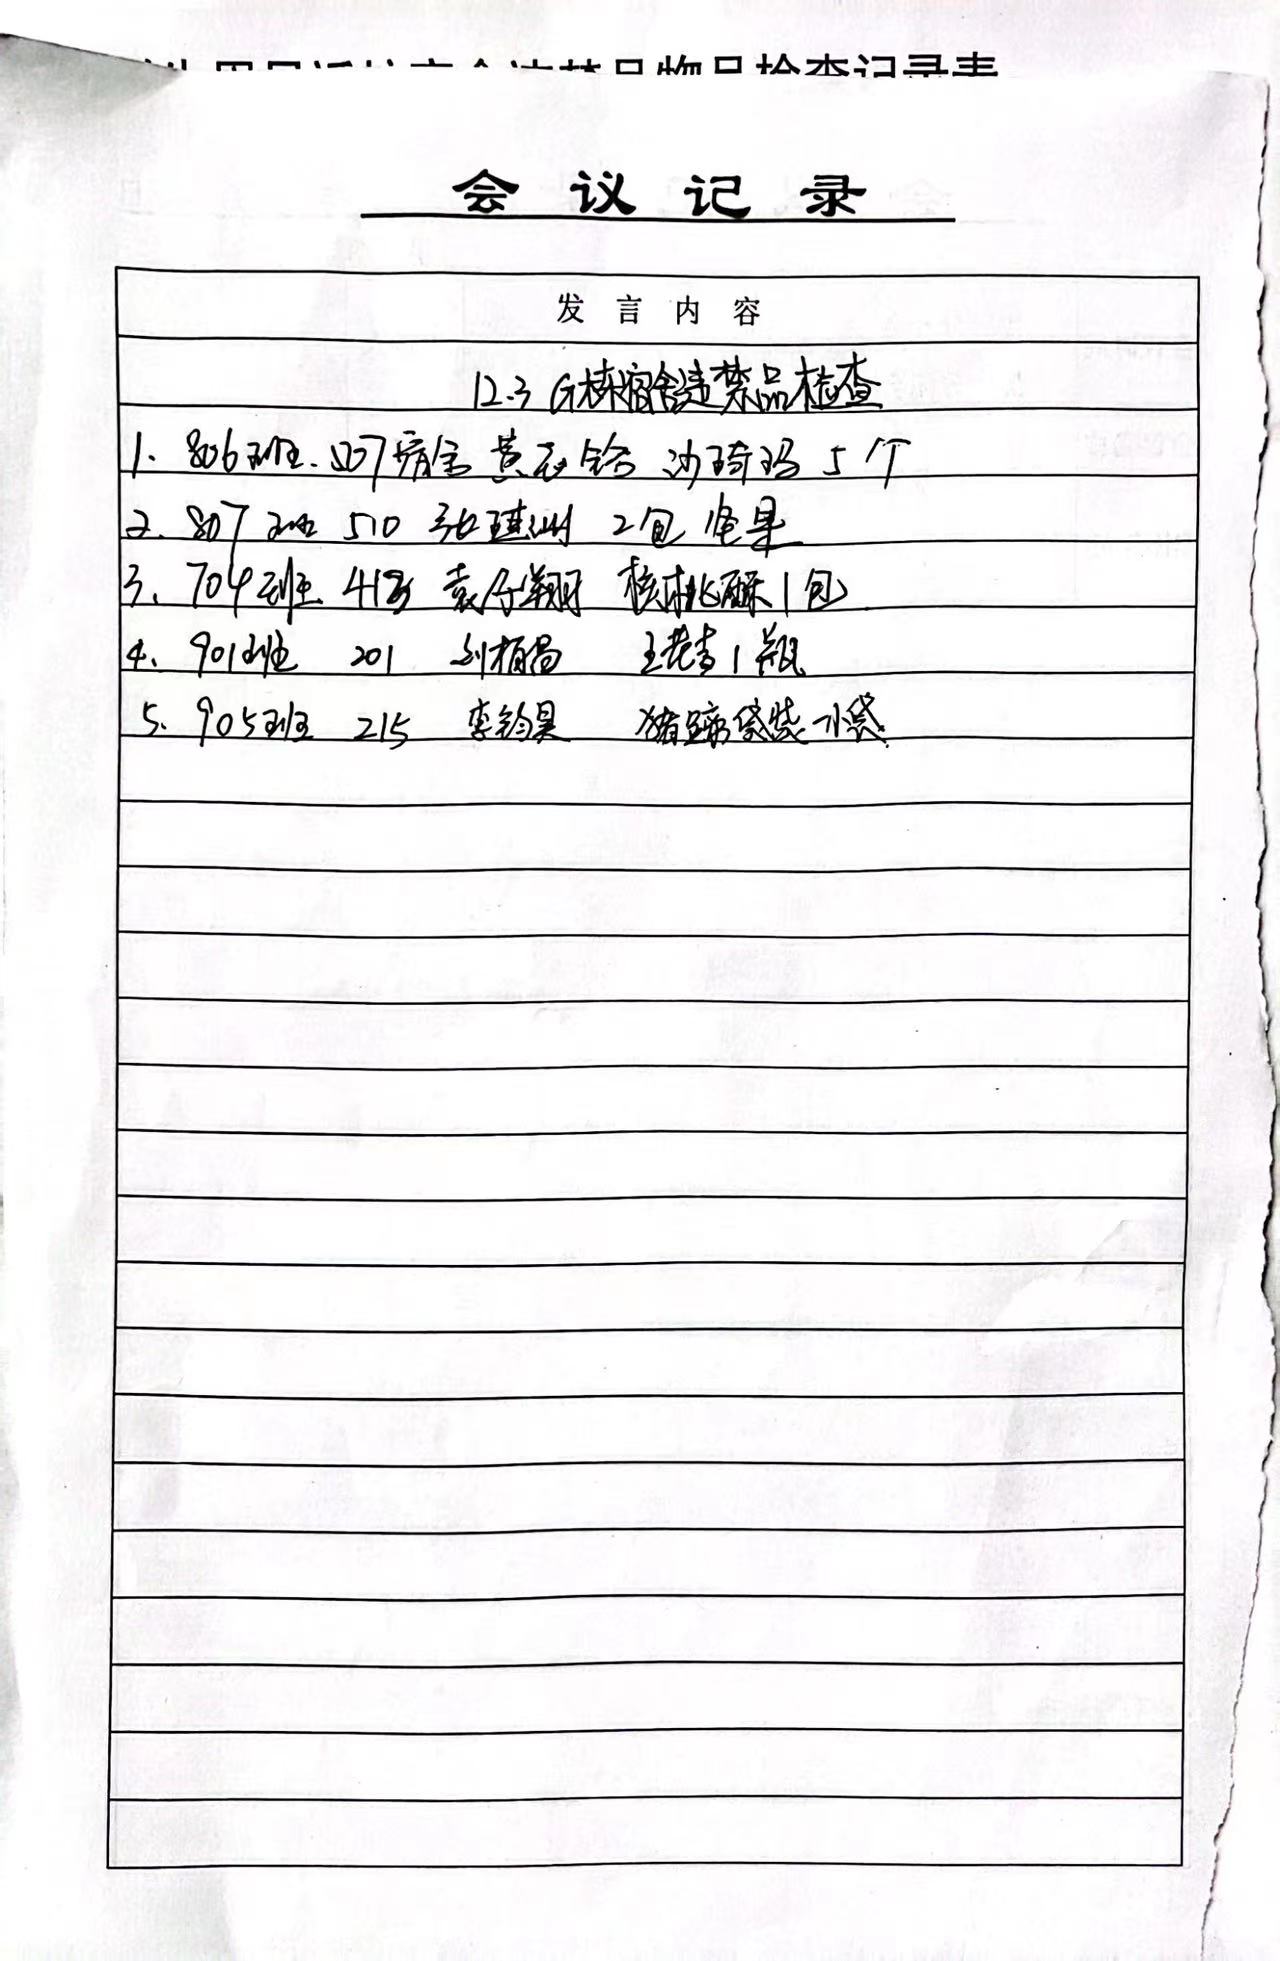 会议记录
发言内容
12.3 G栋宿舍违禁品检查
1. 806班. 207宿舍 黄 铃 沙琦玛 5个
2. 807班 510 张琪 2包 坚果
3. 704班 袁仔翔 核桃酥1包
4. 901班 201 刘栢昌 王老吉1瓶
5. 905班 215 李钧昊 猪蹄袋装 1小袋